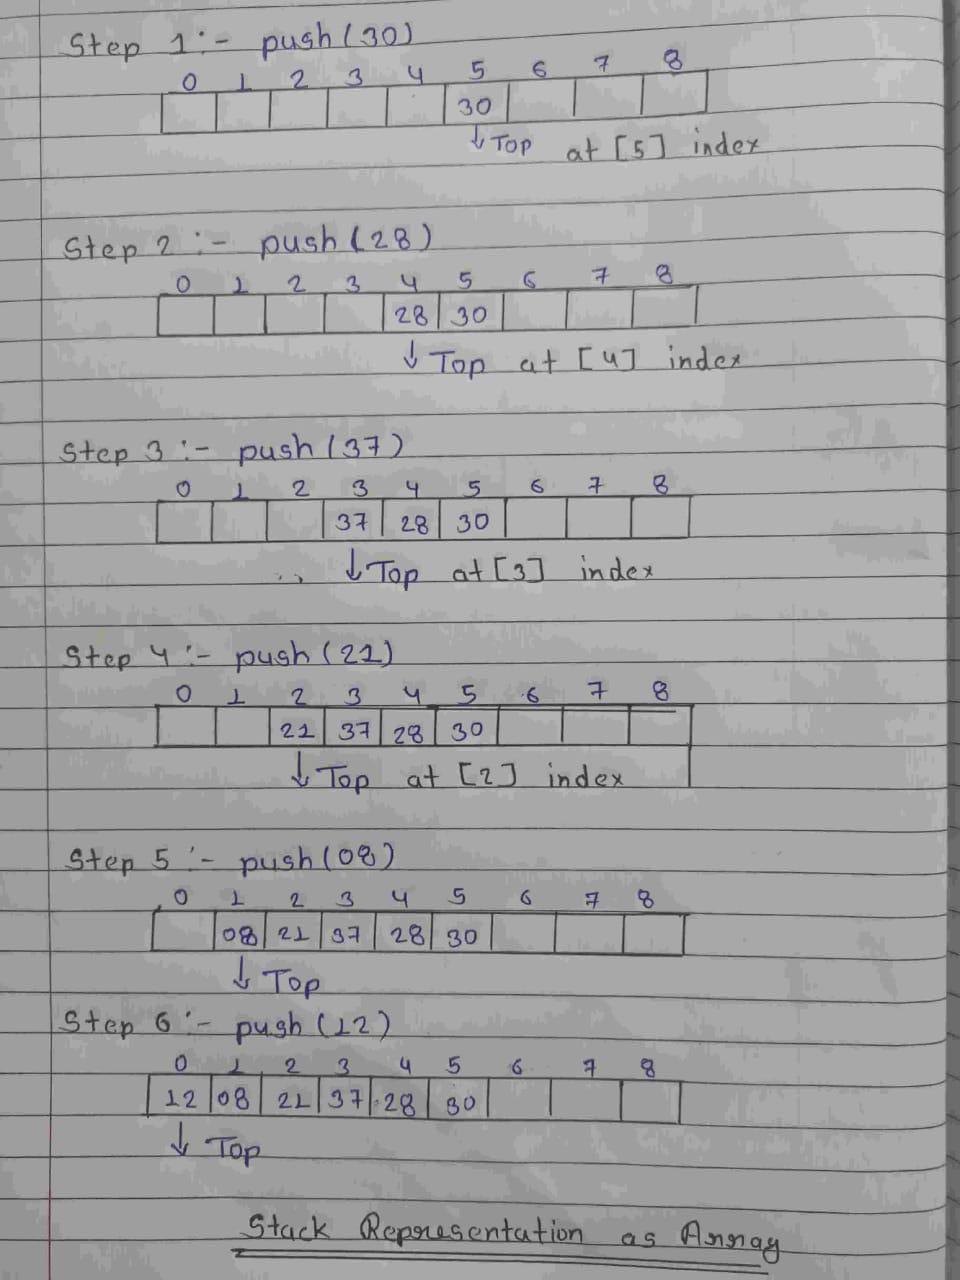 Step 1:- push(30)
0 1 2 3 4 5 6 7 8
30
↓ Top at [5] index
Step 2:- push(28)
0 1 2 3 4 5 6 7 8
28 30
↓ Top at [4] index
Step 3:- push(37)
0 1 2 3 4 5 6 7 8
37 28 30
↓ Top at [3] index
Step 4:- push(21)
0 1 2 3 4 5 6 7 8
21 37 28 30
↓ Top at [2] index
Step 5:- push(08)
0 1 2 3 4 5 6 7 8
08 21 37 28 30
↓ Top
Step 6:- push(12)
0 1 2 3 4 5 6 7 8
12 08 21 37 28 30
↓ Top
Stack Representation as Array